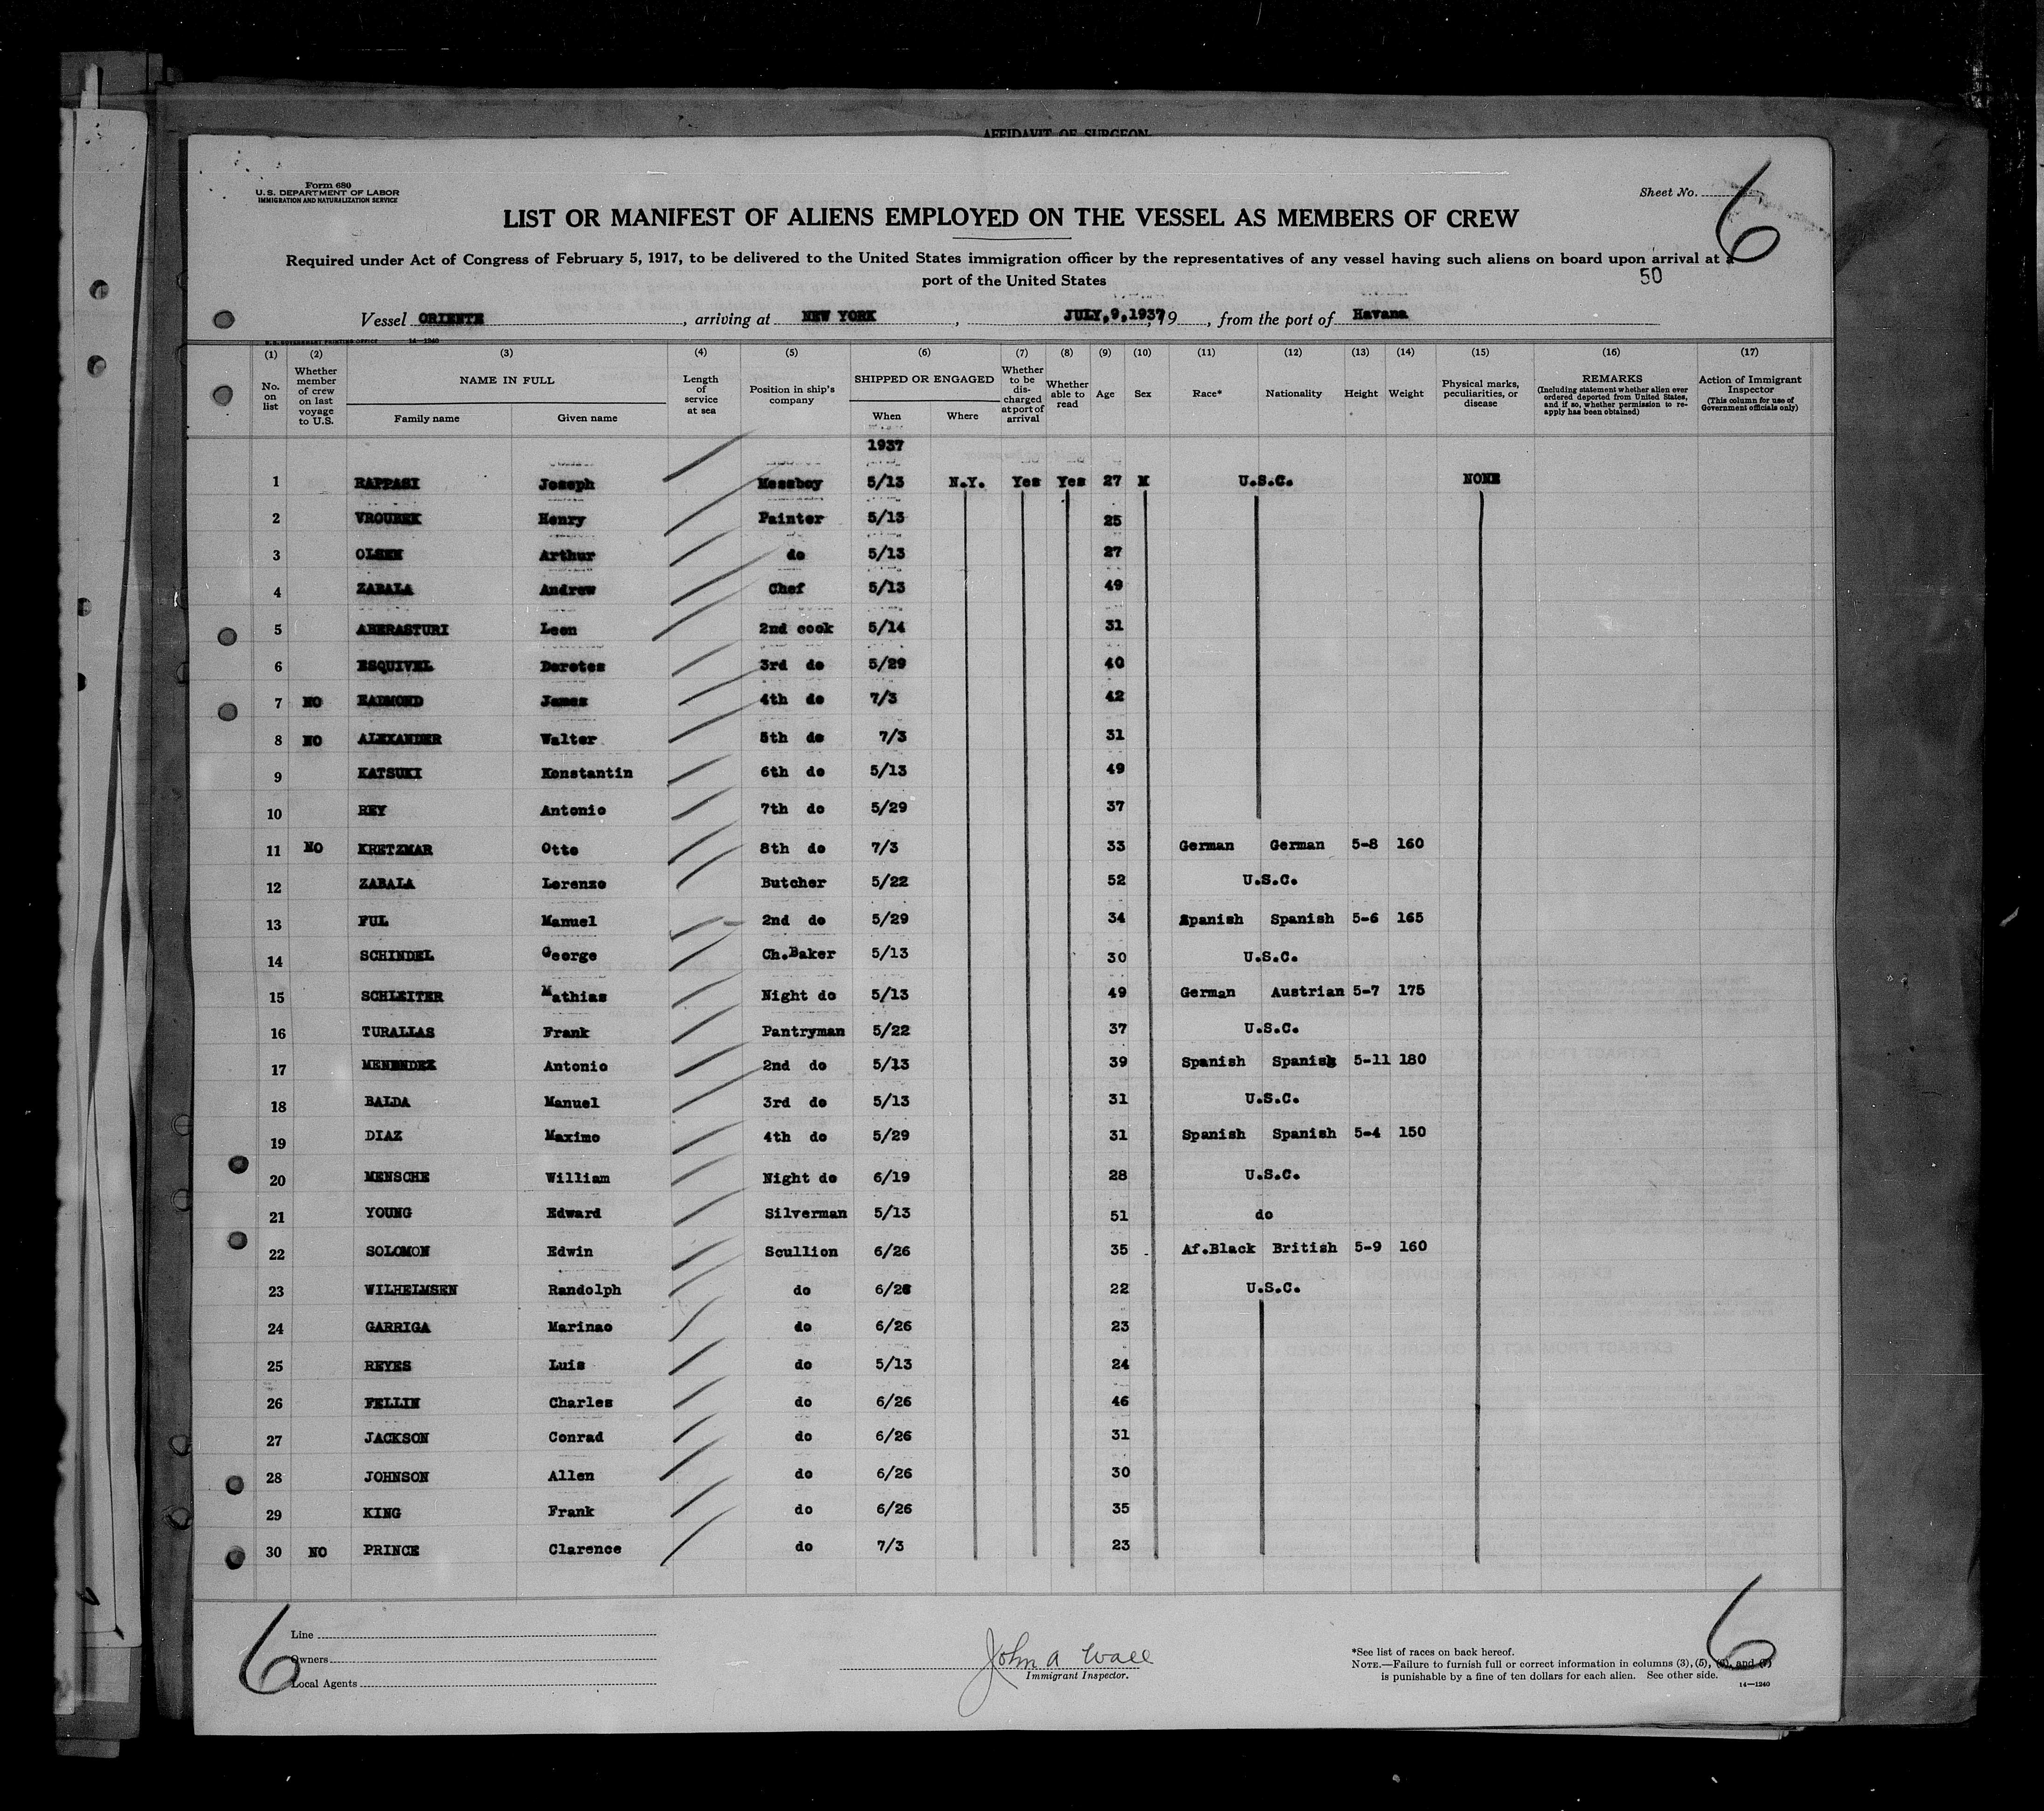 AFFIDAVIT OF SURGEON
Form 680
U. S. DEPARTMENT OF LABOR
IMMIGRATION AND NATURALIZATION SERVICE
Sheet No. 6
LIST OR MANIFEST OF ALIENS EMPLOYED ON THE VESSEL AS MEMBERS OF CREW
Required under Act of Congress of February 5, 1917, to be delivered to the United States immigration officer by the representatives of any vessel having such aliens on board upon arrival at a
port of the United States
50
Vessel ORIENTE, arriving at NEW YORK, JULY,9,1937, 19, from the port of Havana
U. S. GOVERNMENT PRINTING OFFICE 14—1240
(1) (2) (3) (4) (5) (6) (7) (8) (9) (10) (11) (12) (13) (14) (15) (16) (17)
No. on list
Whether member of crew on last voyage to U.S.
NAME IN FULL
Family name Given name
Length of service at sea
Position in ship's company
SHIPPED OR ENGAGED
When Where
Whether to be discharged at port of arrival
Whether able to read
Age
Sex
Race*
Nationality
Height
Weight
Physical marks, peculiarities, or disease
REMARKS
(Including statement whether alien ever ordered deported from United States, and if so, whether permission to reapply has been obtained)
Action of Immigrant Inspector
(This column for use of Government officials only)
1937
1 RAPPASI Joseph Messboy 5/13 N.Y. Yes Yes 27 M U.S.C. NONE
2 VROUBEK Henry Painter 5/13 25
3 OLSEN Arthur do 5/13 27
4 ZABALA Andrew Chef 5/13 49
5 ABERASTURI Leon 2nd cook 5/14 31
6 ESQUIVEL Doroteo 3rd do 5/29 40
7 NO RADMOND James 4th do 7/3 42
8 NO ALEXANDER Walter 5th do 7/3 31
9 KATSUKI Konstantin 6th do 5/13 49
10 REY Antonio 7th do 5/29 37
11 NO KRETZMAR Otto 8th do 7/3 33 German German 5-8 160
12 ZABALA Lorenzo Butcher 5/22 52 U.S.C.
13 FUL Manuel 2nd do 5/29 34 Spanish Spanish 5-6 165
14 SCHINDEL George Ch.Baker 5/13 30 U.S.C.
15 SCHLEITER Mathias Night do 5/13 49 German Austrian 5-7 175
16 TURALLAS Frank Pantryman 5/22 37 U.S.C.
17 MENENDEZ Antonio 2nd do 5/13 39 Spanish Spanish 5-11 180
18 BALDA Manuel 3rd do 5/13 31 U.S.C.
19 DIAZ Maximo 4th do 5/29 31 Spanish Spanish 5-4 150
20 MENSCHE William Night do 6/19 28 U.S.C.
21 YOUNG Edward Silverman 5/13 51 do
22 SOLOMON Edwin Scullion 6/26 35 Af.Black British 5-9 160
23 WILHELMSEN Randolph do 6/26 22 U.S.C.
24 GARRIGA Marinao do 6/26 23
25 REYES Luis do 5/13 24
26 FELLIN Charles do 6/26 46
27 JACKSON Conrad do 6/26 31
28 JOHNSON Allen do 6/26 30
29 KING Frank do 6/26 35
30 NO PRINCE Clarence do 7/3 23
6
Line
Owners
Local Agents
John A Wall
Immigrant Inspector.
*See list of races on back hereof.
NOTE.—Failure to furnish full or correct information in columns (3), (5), (6), and (7)
is punishable by a fine of ten dollars for each alien. See other side.
14—1240
6